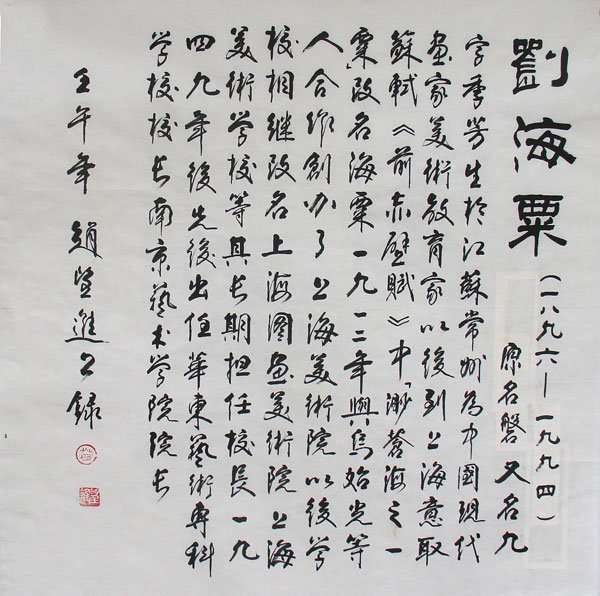 劉海粟
（一八九六—一九九四）
原名磐又名九
字季芳生於江蘇常州為中國現代
画家美術教育家以後到上海意取
蘇軾《前赤壁賦》中「渺蒼海之一
粟改名海粟一九一二年與烏始光等
人合作創办了上海美術院以後学
校相继改名上海图画美術院上海
美術学校等其长期担任校長一九
四九年後先後出任華東藝術專科
学校校长南京藝术学院院长
壬午年 趙望進书録